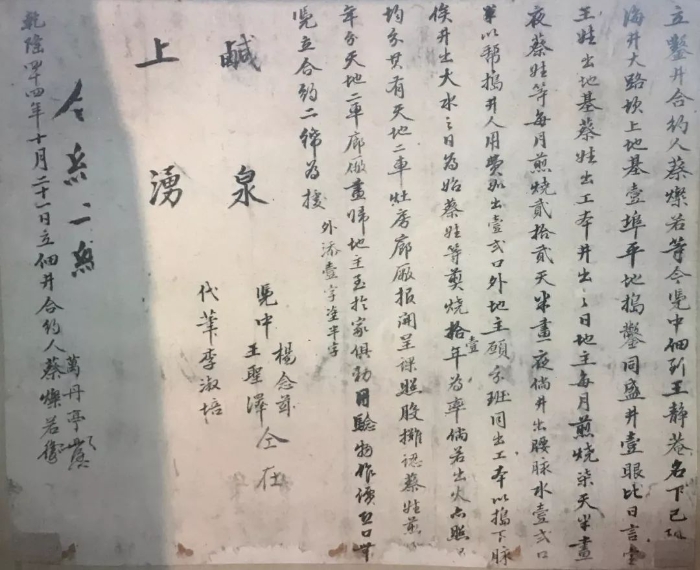 立鑿井合約人蔡燦若等今覓中佃到王静菴名下已
海井大路坎上地基壹埠平地搗鑿同盛井壹眼比日言
王姓出地基蔡姓出工本井出之日地主每月煎燒柒天半晝
夜蔡姓等每月煎燒貳拾貳天半晝一夜倘井出腰脉水壹弍口
以帮搗井人用費如出壹弍口外地主願分班同出工本以搗下脉
俟井出大水之日為始蔡姓等煎燒拾壹年為率倘若出火亦照
均分其有天地二車灶房廊厰報開呈課照股攤認蔡姓煎
年分天地二車廊厰盡歸地主至於家俱動用驗物作價
覓立合約二紙為據
外添壹字塗半字
鹹泉
上湧
覓中 楊念茲 王聖澤 仝在
代筆 李淑培
乾隆四十四年十月二十一日立佃井合約人蔡燦若 萬丹亭